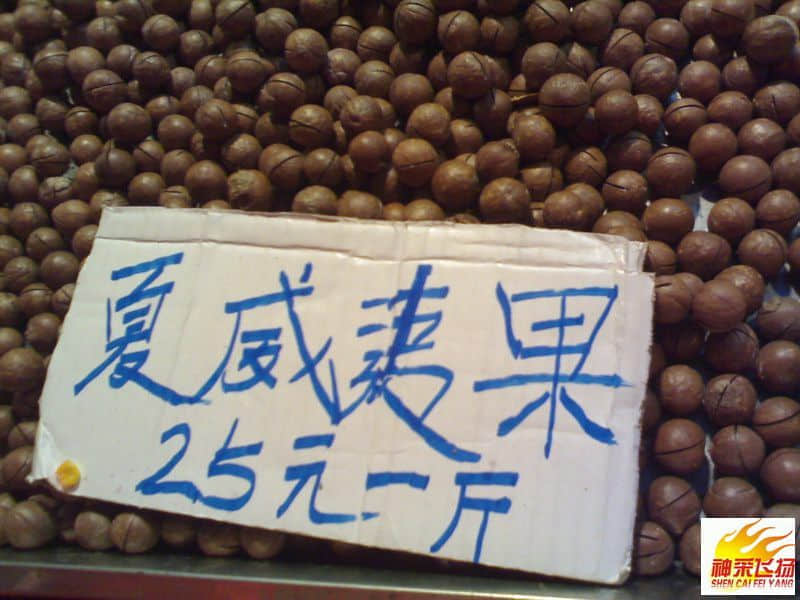 夏威夷果
25元一斤
神采飞扬
SHEN CAI FEI YANG